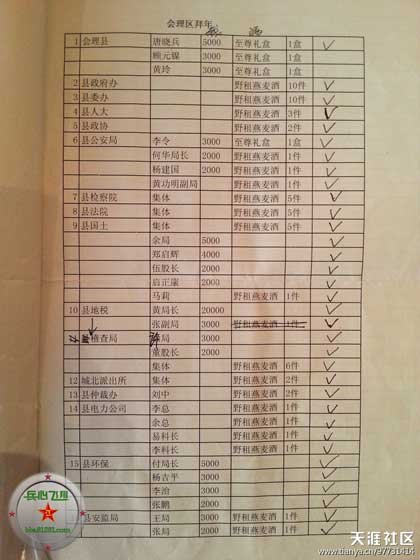 会理区拜年
1 会理县 唐晓兵 5000 至尊礼盒 1盒
顾元猱 3000 至尊礼盒 1盒
黄玲 3000 至尊礼盒 1盒
2 县政府办 野租燕麦酒 10件
3 县委办 野租燕麦酒 10件
4 县人大 野租燕麦酒 3件
5 县政协 野租燕麦酒 2件
6 县公安局 李令 3000 至尊礼盒 1盒
何华局长 2000 野租燕麦酒 1件
杨建国 2000 野租燕麦酒 1件
黄功明副局 野租燕麦酒 1件
7 县检察院 集体 野租燕麦酒 5件
8 县法院 集体 野租燕麦酒 5件
9 县国土 集体 野租燕麦酒 5件
余局 5000
郑启辉 4000
伍股长 2000
启正康 2000
马莉 野租燕麦酒 1件
10 县地税 黄局长 20000
张副局 3000 野租燕麦酒 1件
稽查局 局 3000
董股长 2000
集体 野租燕麦酒 6件
12 城北派出所 集体 野租燕麦酒 2件
13 县仲裁办 刘中 2000 野租燕麦酒 2件
14 县电力公司 李总 野租燕麦酒 1件
余总 野租燕麦酒 1件
易科长 野租燕麦酒 1件
李科长 野租燕麦酒 1件
15 县环保 付局长 5000
杨吉平 3000
李治 3000
张鹏 2000
县安监局 王局 3000 野租燕麦酒 1件
张局 2000 野租燕麦酒 1件
民心飞扬
bbs.81281.com
天涯社区
www.tianya.cn/97731414